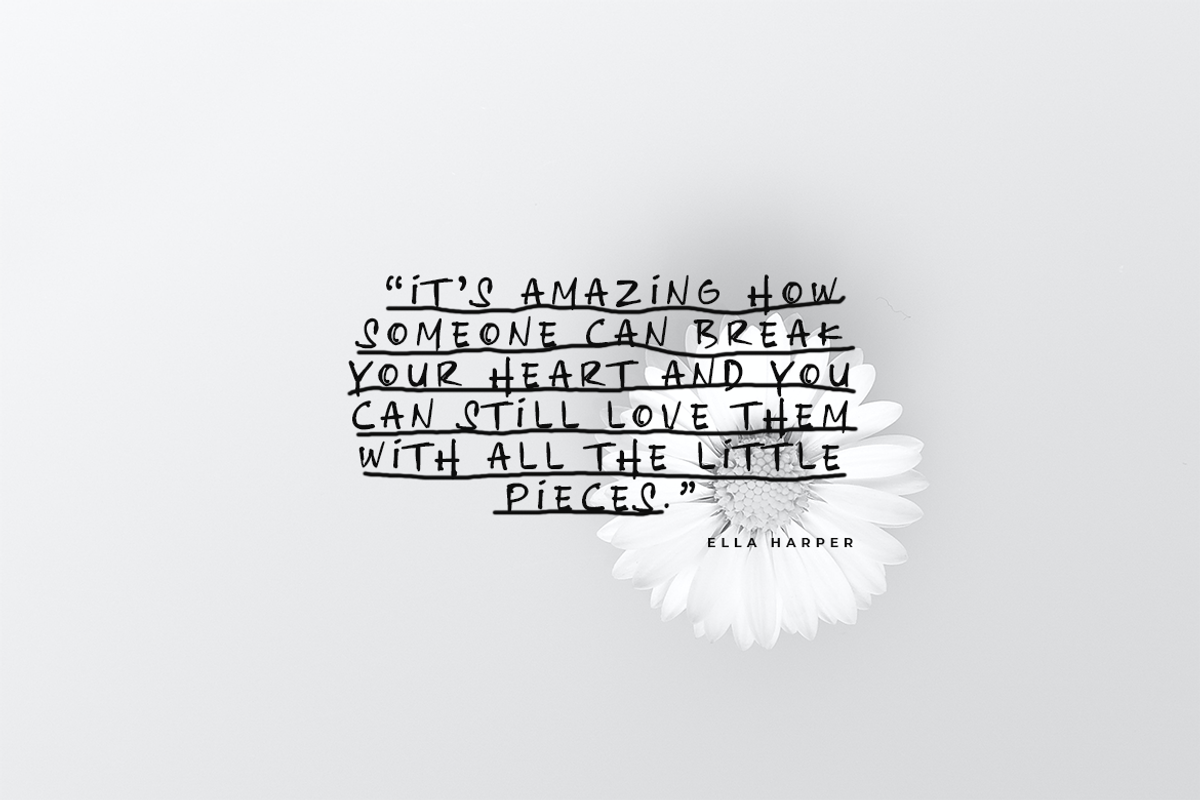 “iT’S AMAZiNG HOW
SOMEONE CAN BREAK
YOUR HEART AND YOU
CAN STiLL LOVE THEM
WiTH ALL THE LiTTLE
PiECES.”
ELLA HARPER